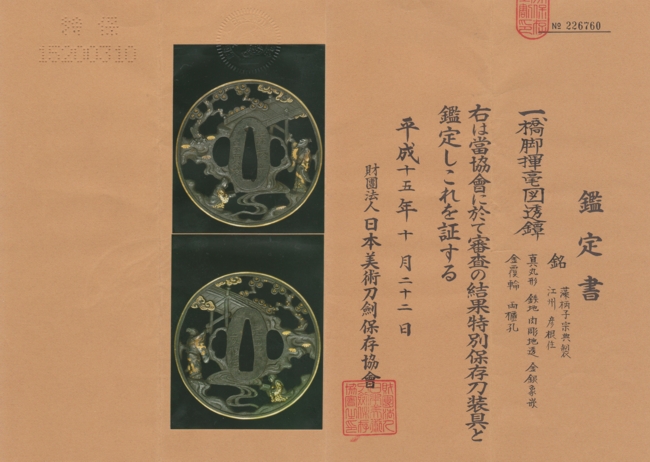 鑑定書
一、橋脚揮毫図透鐔
銘 藻柄子宗典製
江州彦根住
真丸形 鉄地 肉彫地透 金銀象嵌
金覆輪 両櫃孔
右は當協會に於て審査の結果特別保存刀装具と
鑑定しこれを証する
平成十五年十月二十二日
財團法人 日本美術刀劍保存協會
№ 226760
特保
15200310